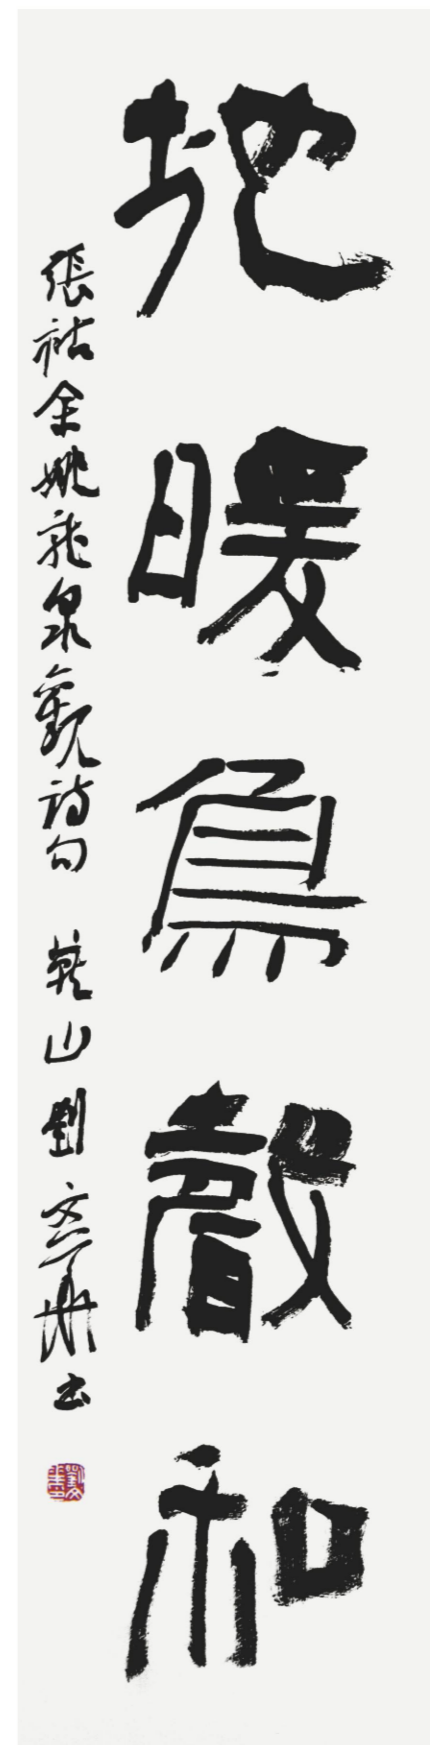 地暖鳥聲和
張祜余姚龍泉觀詩句 山劉文華書